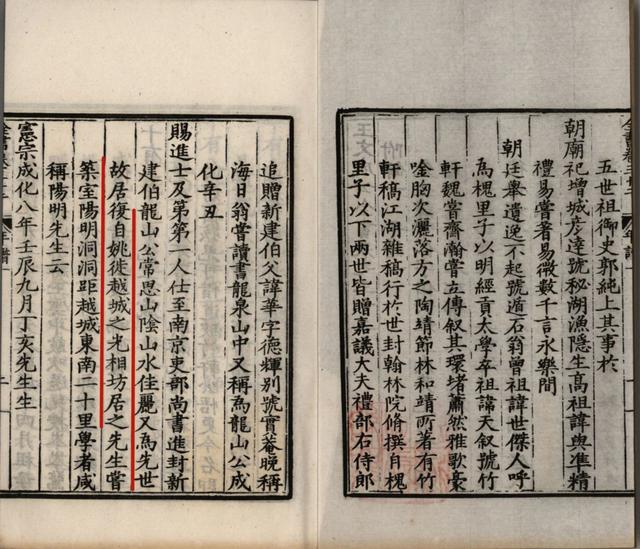 五世祖御史郭純上其事於
朝廟祀增城彥達號秘湖漁隱生高祖諱與準精
禮易嘗著易微數千言永樂間
朝廷舉遺逸不起號遁石翁曾祖諱世傑人呼
為槐里子以明經貢太學卒祖諱天叙號竹
軒魏嘗齋瀚嘗立傳叙其環堵蕭然雅歌豪
吟胸次灑落方之陶靖節林和靖所著有竹
軒稿江湖雜稿行於世封翰林院修撰自槐
里子以下兩世皆贈嘉議大夫禮部右侍郎
追贈新建伯父諱華字德輝別號實菴晚稱
海日翁嘗讀書龍泉山中又稱為龍山公成
化辛丑
賜進士及第第一人仕至南京吏部尚書進封新
建伯龍山公常思山陰山水佳麗又為先世
故居復自姚徙越城之光相坊居之先生嘗
築室陽明洞洞距越城東南二十里學者咸
稱陽明先生云
憲宗成化八年壬辰九月丁亥先生生
年譜